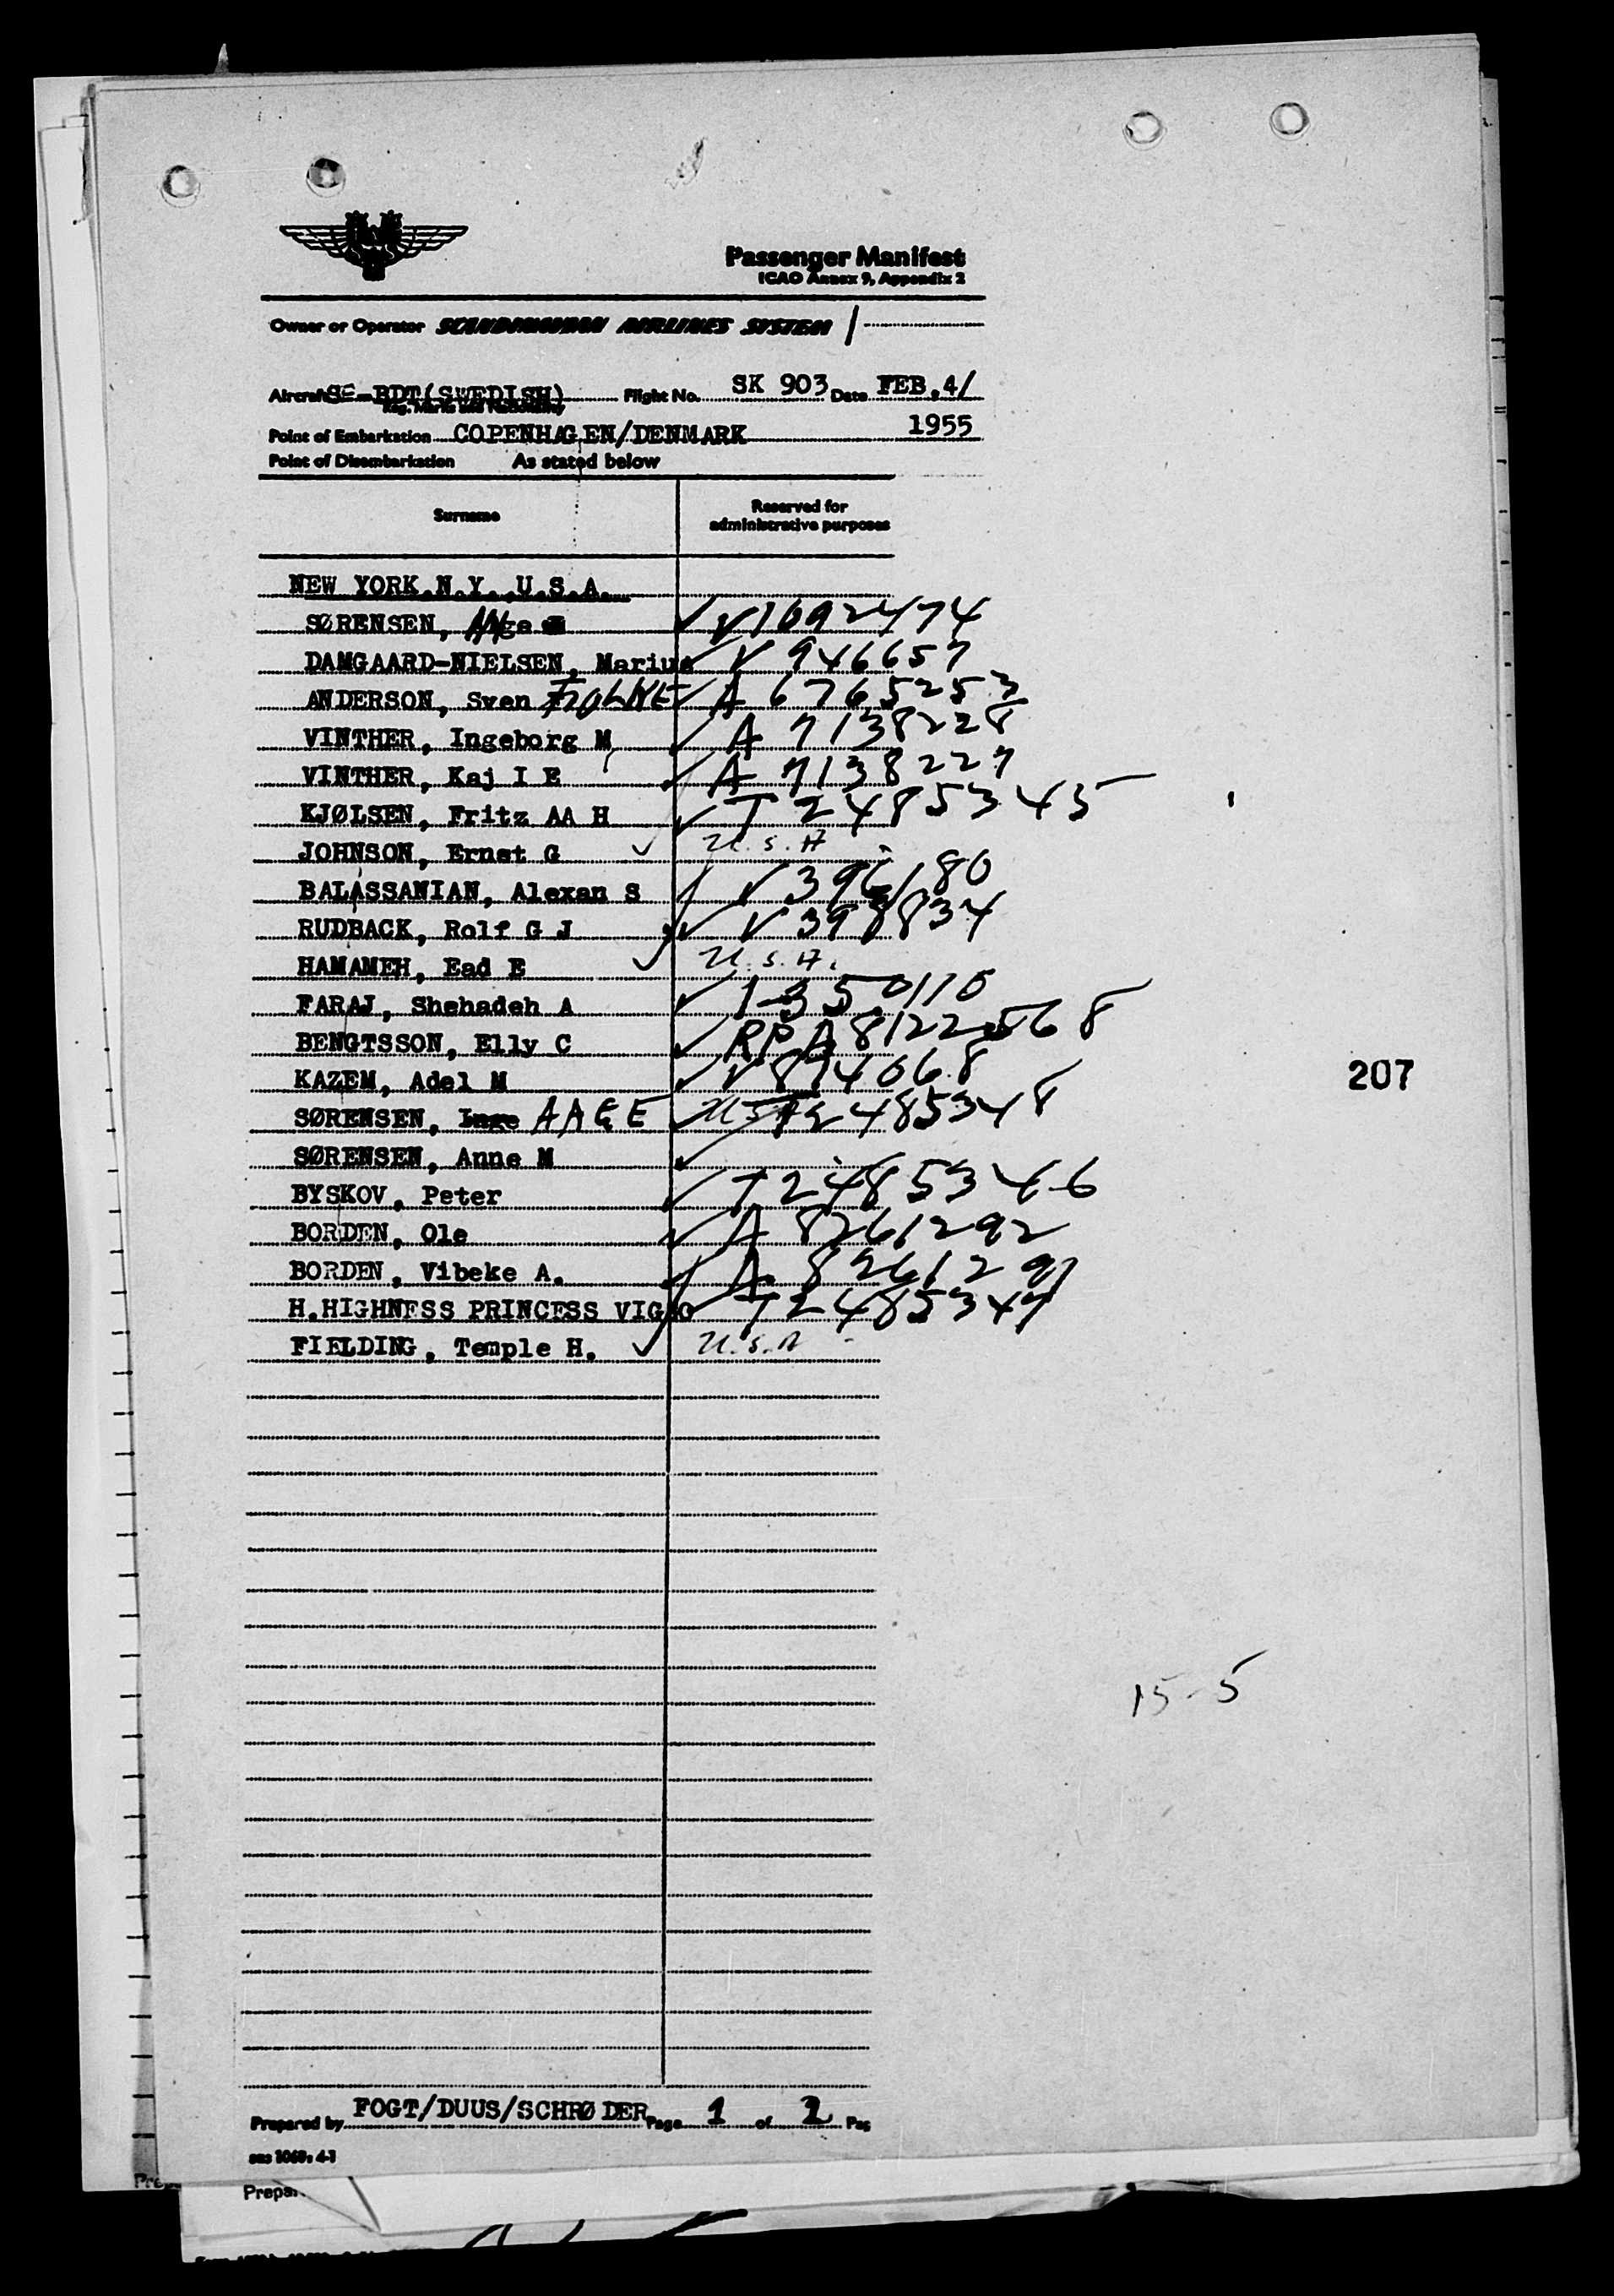 Passenger Manifest
ICAO Annex 9, Appendix 2
Owner or Operator SCANDINAVIAN AIRLINES SYSTEM /
Aircraft SE-BDT(SWEDISH) Flight No. SK 903 Date FEB.4/
Reg. Marks and Nationality
Point of Embarkation COPENHAGEN/DENMARK 1955
Point of Disembarkation As stated below
Surname Reserved for
administrative purposes
NEW YORK.N.Y.,U.S.A.
SØRENSEN, ✓ V1092474
DAMGAARD-NIELSEN, Marius ✓ V 946657
ANDERSON, Sven FROLUVE ✓ A 6765253
VINTHER, Ingeborg M ✓ A 7138228
VINTHER, Kaj I E ✓ A 7138227
KJØLSEN, Fritz AA H ✓ T 2485345
JOHNSON, Ernst G ✓ U.S.A
BALASSANIAN, Alexan S ✓ V 396180
RUDBACK, Rolf G J ✓ V 398834
HAMAMEH, Ead E ✓ U.S.A.
FARAJ, Shehadeh A ✓ 1350110
BENGTSSON, Elly C ✓ RP A8122568
KAZEM, Adel M ✓ V 874068
207
SØRENSEN, Inge AAGE ✓ T2485348
SØRENSEN, Anne M ✓
BYSKOV, Peter ✓ T2485346
BORDEN, Ole ✓ A 8261292
BORDEN, Vibeke A. ✓ A 8261291
H.HIGHNESS PRINCESS VIGGO ✓ T2485347
FIELDING, Temple H. ✓ U.S.A
15-5
Prepared by FOGT/DUUS/SCHRØDER Page 1 of 2 Pag
sas 1068: 4-1
Prepar